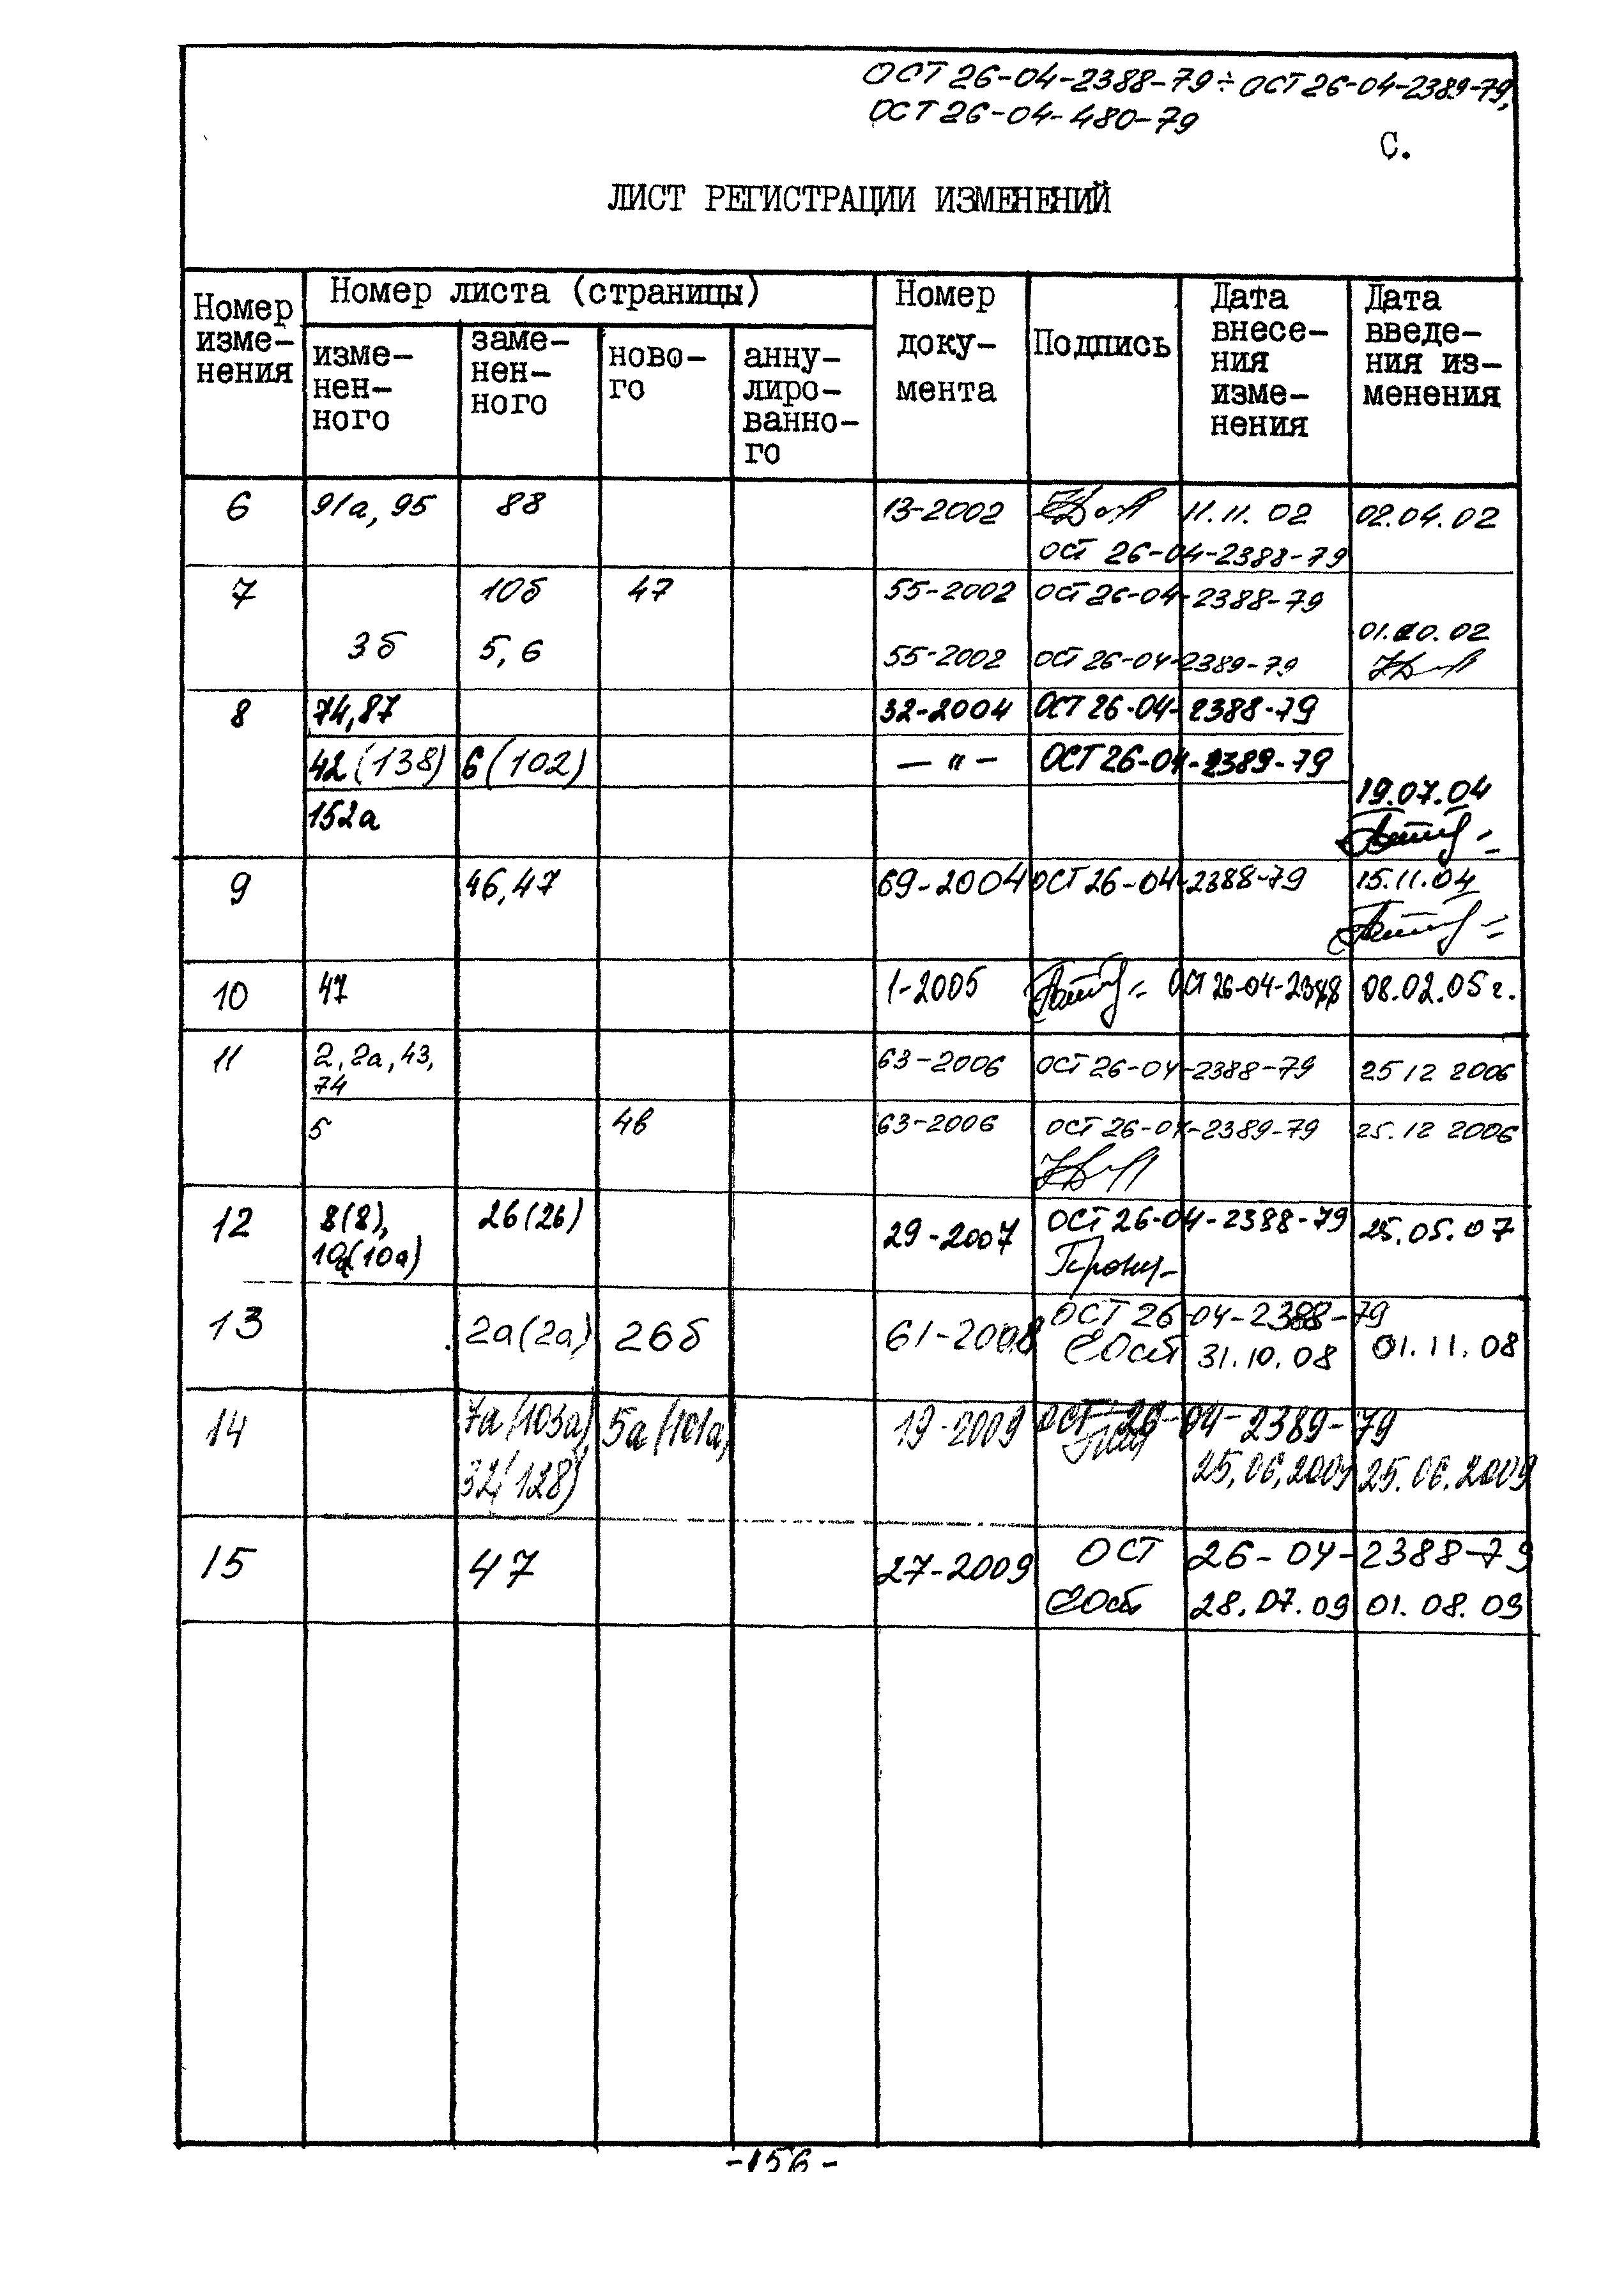 ОСТ 26-04-2388-79÷ОСТ 26-04-2389-79,
ОСТ 26-04-480-79
С.
ЛИСТ РЕГИСТРАЦИИ ИЗМЕНЕНИЙ
Номер изме- нения
Номер листа (страницы)
изме- нен- ного
заме- нен- ного
ново- го
анну- лиро- ванно- го
Номер доку- мента
Подпись
Дата внесе- ния изме- нения
Дата введе- ния из- менения
6 91а, 95 88 13-2002 11.11.02 02.04.02
ОСТ 26-04-2388-79
7 10б 47 55-2002 ОСТ 26-04-2388-79
01.10.02
3б 5, 6 55-2002 ОСТ 26-04-2389-79
8 74,87 32-2004 ОСТ 26-04-2388-79
42 (138) 6 (102) — " — ОСТ 26-04-2389-79
19.07.04
152а
9 46,47 69-2004 ОСТ 26-04-2388-79 15.11.04
10 47 1-2005 ОСТ 26-04-2388 08.02.05 г.
11 2, 2а, 43, 63-2006 ОСТ 26-04-2388-79 25 12 2006
74
5 4в 63-2006 ОСТ 26-04-2389-79 25.12 2006
12 8(8), 26(26) 29-2007 ОСТ 26-04-2388-79 25.05.07
10а(10а)
ОСТ 26-04-2388-79
13 2а(2а) 26б 61-2008 31.10.08 01.11.08
14 7а(103а), 5а(101а) 19-2009 ОСТ 26-04-2389-79
32(128) 25.06.2009 25.06.2009
15 47 27-2009 ОСТ 26-04-2388-79
28.07.09 01.08.09
-156-